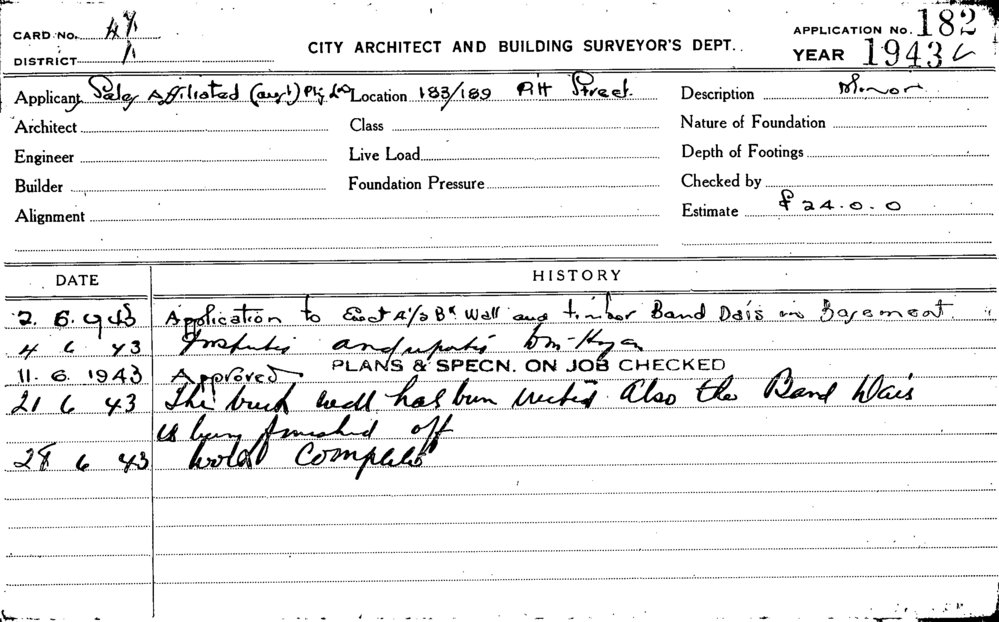 CARD No. 47
DISTRICT 1
CITY ARCHITECT AND BUILDING SURVEYOR'S DEPT.
APPLICATION No. 182
YEAR 1943
Applicant Affiliated (Aust) Pty Ltd Location 183/189 Pitt Street. Description Minor
Architect Class Nature of Foundation
Engineer Live Load Depth of Footings
Builder Foundation Pressure Checked by
Alignment Estimate £24.0.0
DATE HISTORY
2. 6. 1943 Application to Erect 4½ Bk Wall and timber Band Dais in Basement.
4 6 43 and
11. 6. 1943 Approved. PLANS & SPECN. ON JOB CHECKED
21 6 43 The brick wall has been erected also the Band Dais
is being finished off
28 6 43 Work Completed